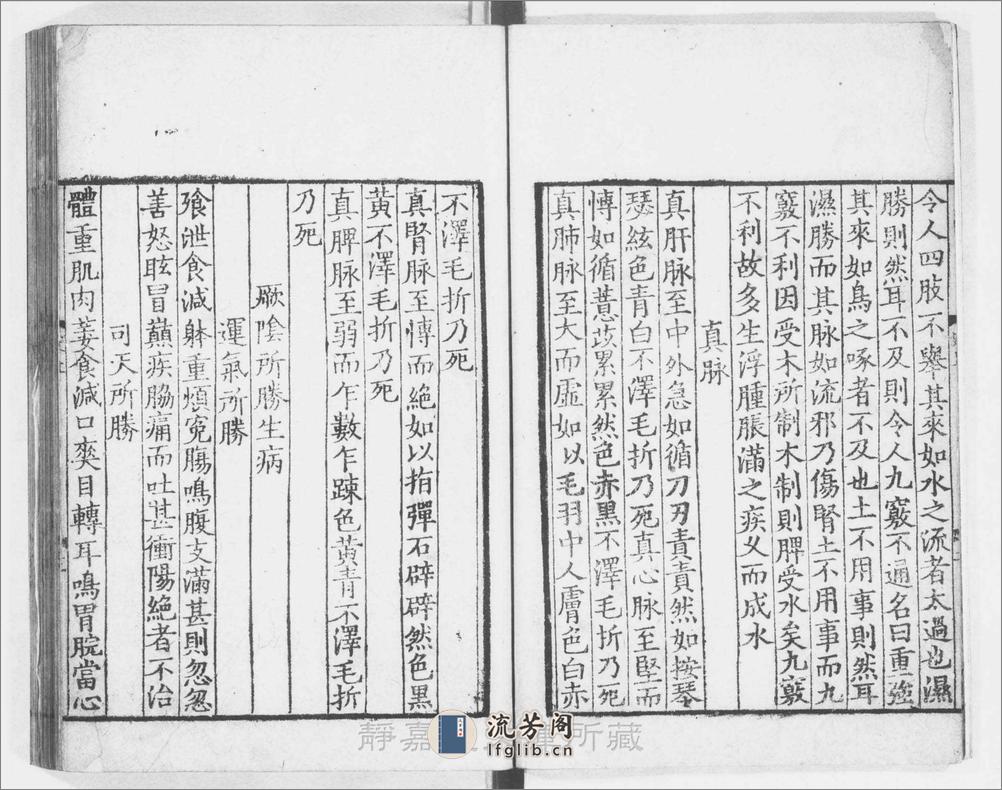 令人四肢不舉其來如水之流者太過也濕
勝則然耳不及則令人九竅不通名曰重強
其來如鳥之啄者不及也土不用事則然耳
濕勝而其脉如流邪乃傷腎土不用事而九
竅不利因受木所制木制則脾受水矣九竅
不利故多生浮腫脹滿之疾久而成水
真脉
真肝脉至中外急如循刀刃責責然如按琴
瑟絃色青白不澤毛折乃死真心脉至堅而
慱如循薏苡累累然色赤黑不澤毛折乃死
真肺脉至大而虛如以毛羽中人膚色白赤
不澤毛折乃死
真腎脉至慱而絕如以指彈石辟辟然色黑
黃不澤毛折乃死
真脾脉至弱而乍數乍踈色黃青不澤毛折
乃死
厥陰所勝生病
運氣所勝
飱泄食減躰重煩冤腸鳴腹支滿甚則忽忽
善怒眩冒巔疾脇痛而吐甚衝陽絕者不治
司天所勝
體重肌肉萎食減口爽目轉耳鳴胃脘當心
靜嘉 所藏
流芳阁
lfglib.cn